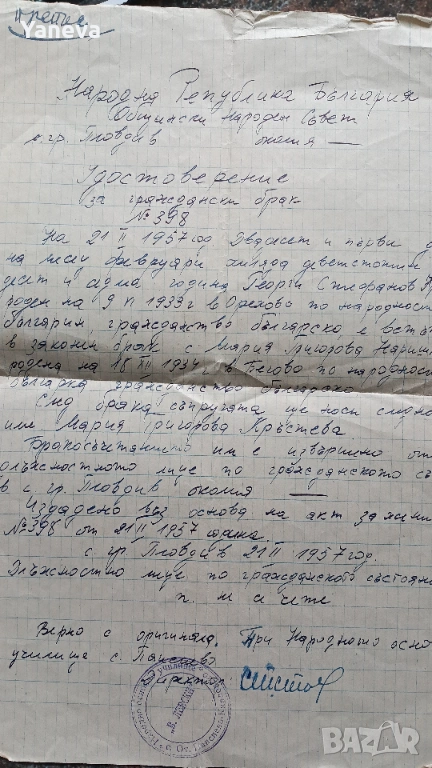 Yaneva
Препис
Народна Република България
Общински Народен Съвет
с. гр. Пловдив околия —
Удостоверение
за граждански брак
№ 398
На 21 II 1957 год. Двадесет и първи
на месец февруари хиляда деветстотин
десет и седма година Георги Стефанов
роден на 9 II 1933 г. в Орехово по народност
българин гражданство българско е встъ
в законен брак с Мария Григорова
родена на 18 III 1934 г. в Бегово по народнос
българка гражданство българско
След брака съпругата ще носи следно
име Мария Григорова Кръстева.
Бракосъчетанието им е извършено от
длъжностното лице по гражданското съ
в с. гр. Пловдив околия —
Издадено въз основа на акт за жени
№ 398 от 21 II 1957 година.
с. гр. Пловдив 21 II 1957 год.
Длъжностно лице по гражданското състояни
п. м. не се чете
Верно с оригинала. При Народното осно
училище с.
Директор:
В. ЛЕВСКИ
BAZAR
bg